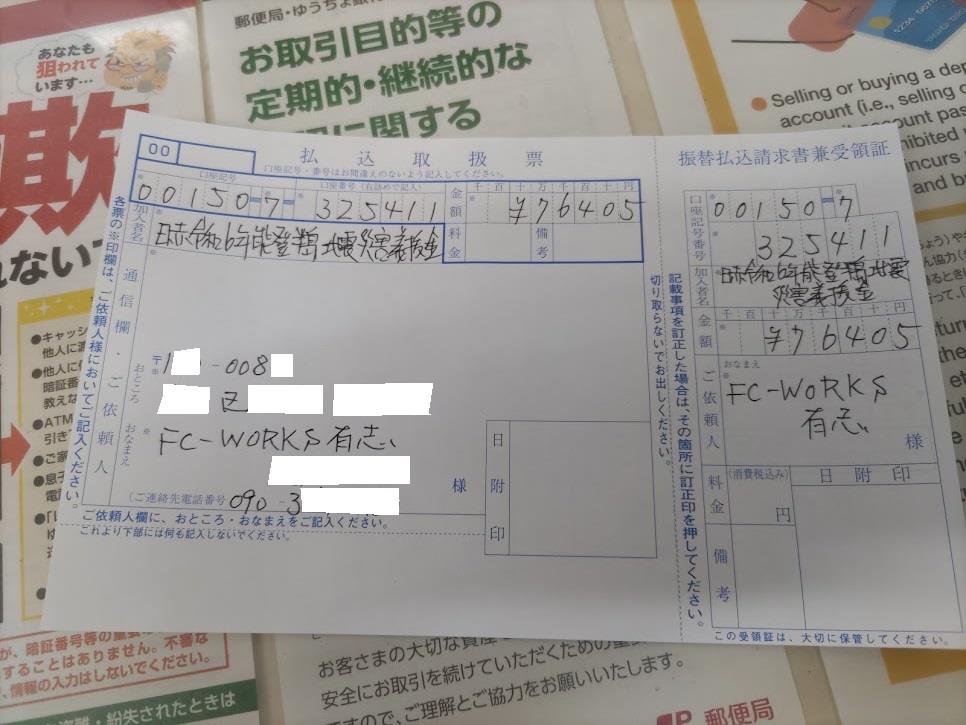 あなたも
狙われて
います…
欺
郵便局・ゆうちょ銀行
お取引目的等の
定期的・継続的な
に関する
Selling or buying a dep
account (i.e., selling o
account pas
hibited
incurs
and b
00
払込取扱票
口座記号・番号はお間違えのないよう記入してください。
口座記号
口座番号(右詰めで記入)
00150-7 325411
金額
千百十万千百十円
¥76405
加入者名
日赤令和6年能登半島地震災害義援金
料金
備考
各票の※印欄は、ご依頼人様においてご記入ください。
通信欄・ご依頼人
おところ
〒1 -008
区
おなまえ
FC-WORKS有志
様
(ご連絡先電話番号 090-3
ご依頼人欄に、おところ・おなまえをご記入ください。
これより下部には何も記入しないでください。
日附印
切り取らないでお出しください。
記載事項を訂正した場合は、その箇所に訂正印を押してください。
振替払込請求書兼受領証
口座記号番号
00150-7
325411
加入者名
日赤令和6年能登半島地震
災害義援金
金額
千百十万千百十円
¥76405
ご依頼人
おなまえ
FC-WORKS
有志
様
料金
(消費税込み)
円
日附印
備考
この受領証は、大切に保管してください。
●キャッシ
他人に
●他人に
暗証番
教えな
●ATM
引き
●ご家
●息子
電話
が、暗証番号等の重要
することはありません。不審な
、情報の入力はしないでください。
盗難・紛失されたときは
お客さまの大切な資産
安全にお取引を続けていただくための重要
ですので、ご理解とご協力をお願いいたします。
郵便局